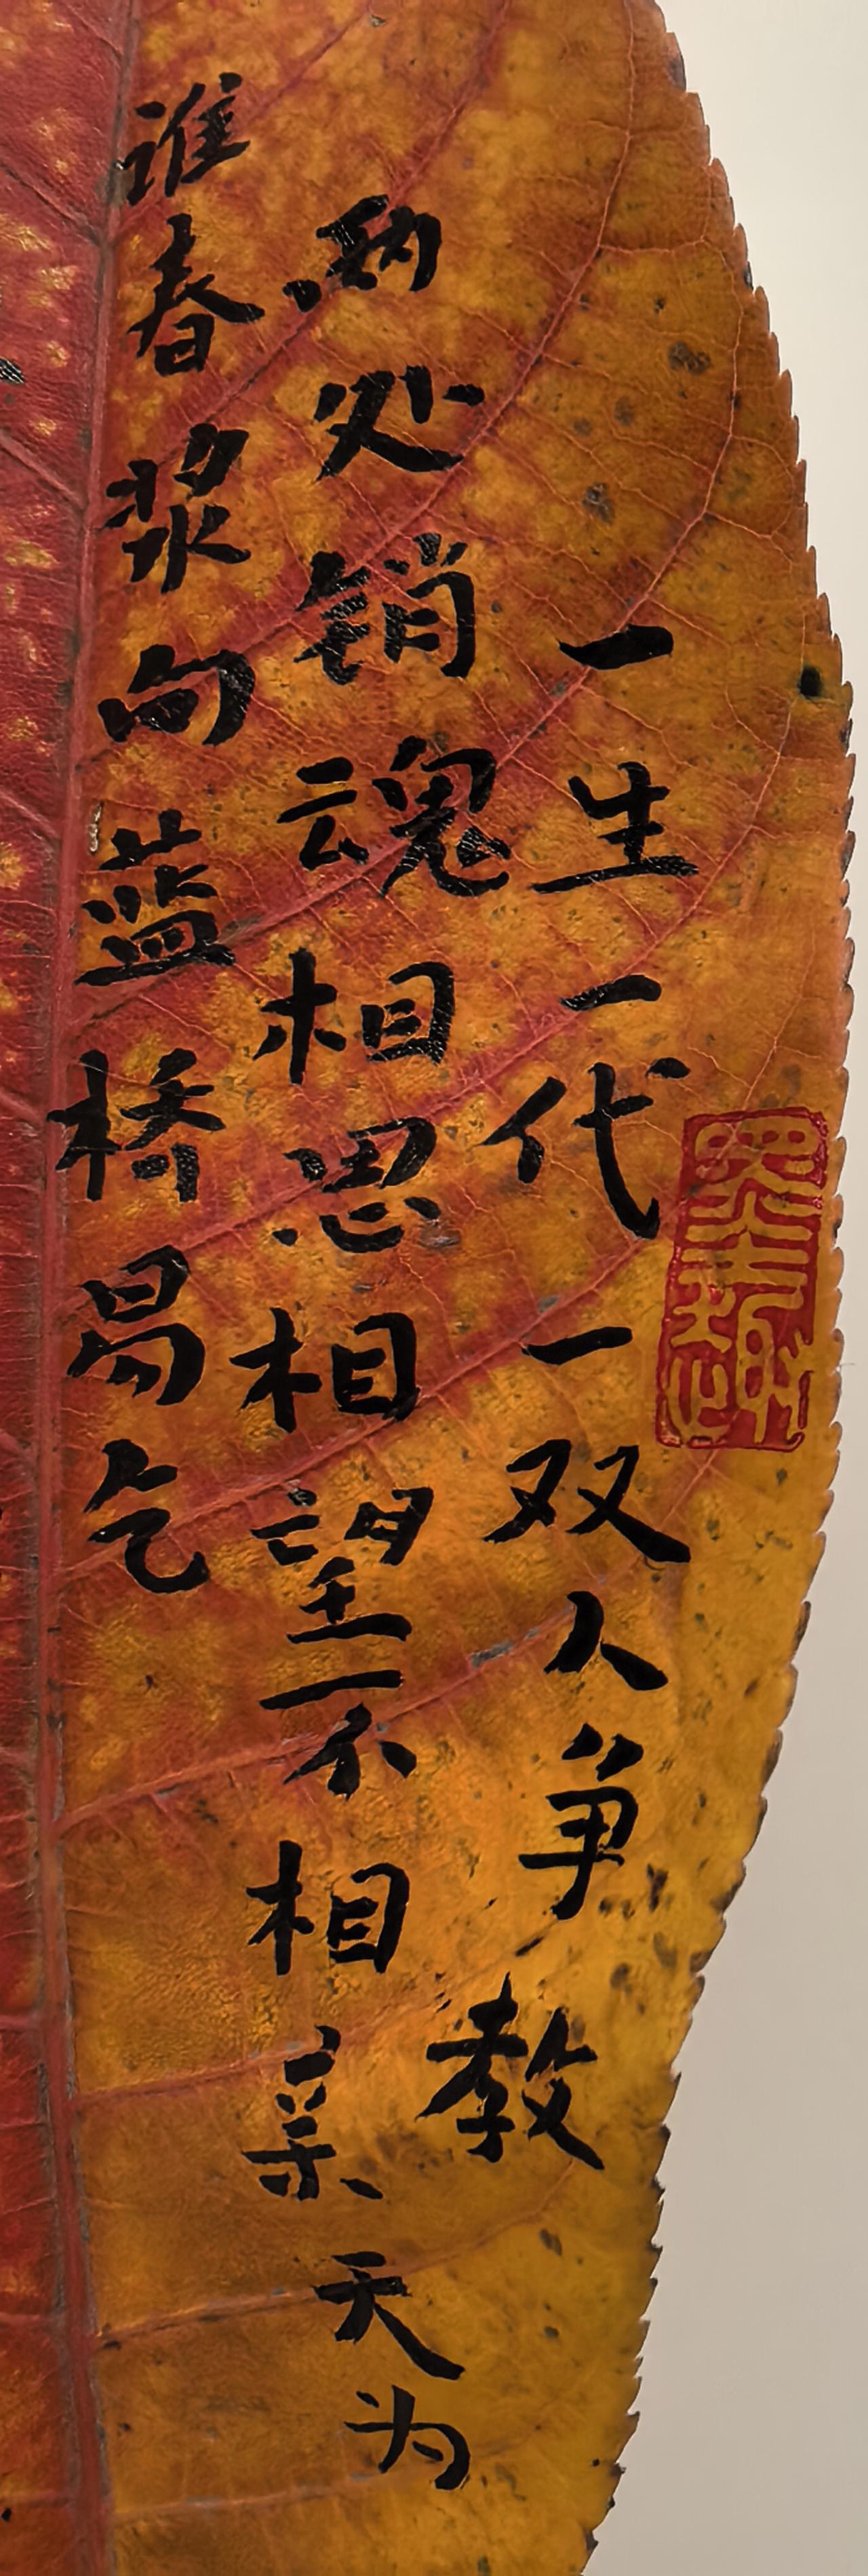 一生一代一双人争教
两处销魂相思相望不相亲天为
谁春浆向蓝桥易乞